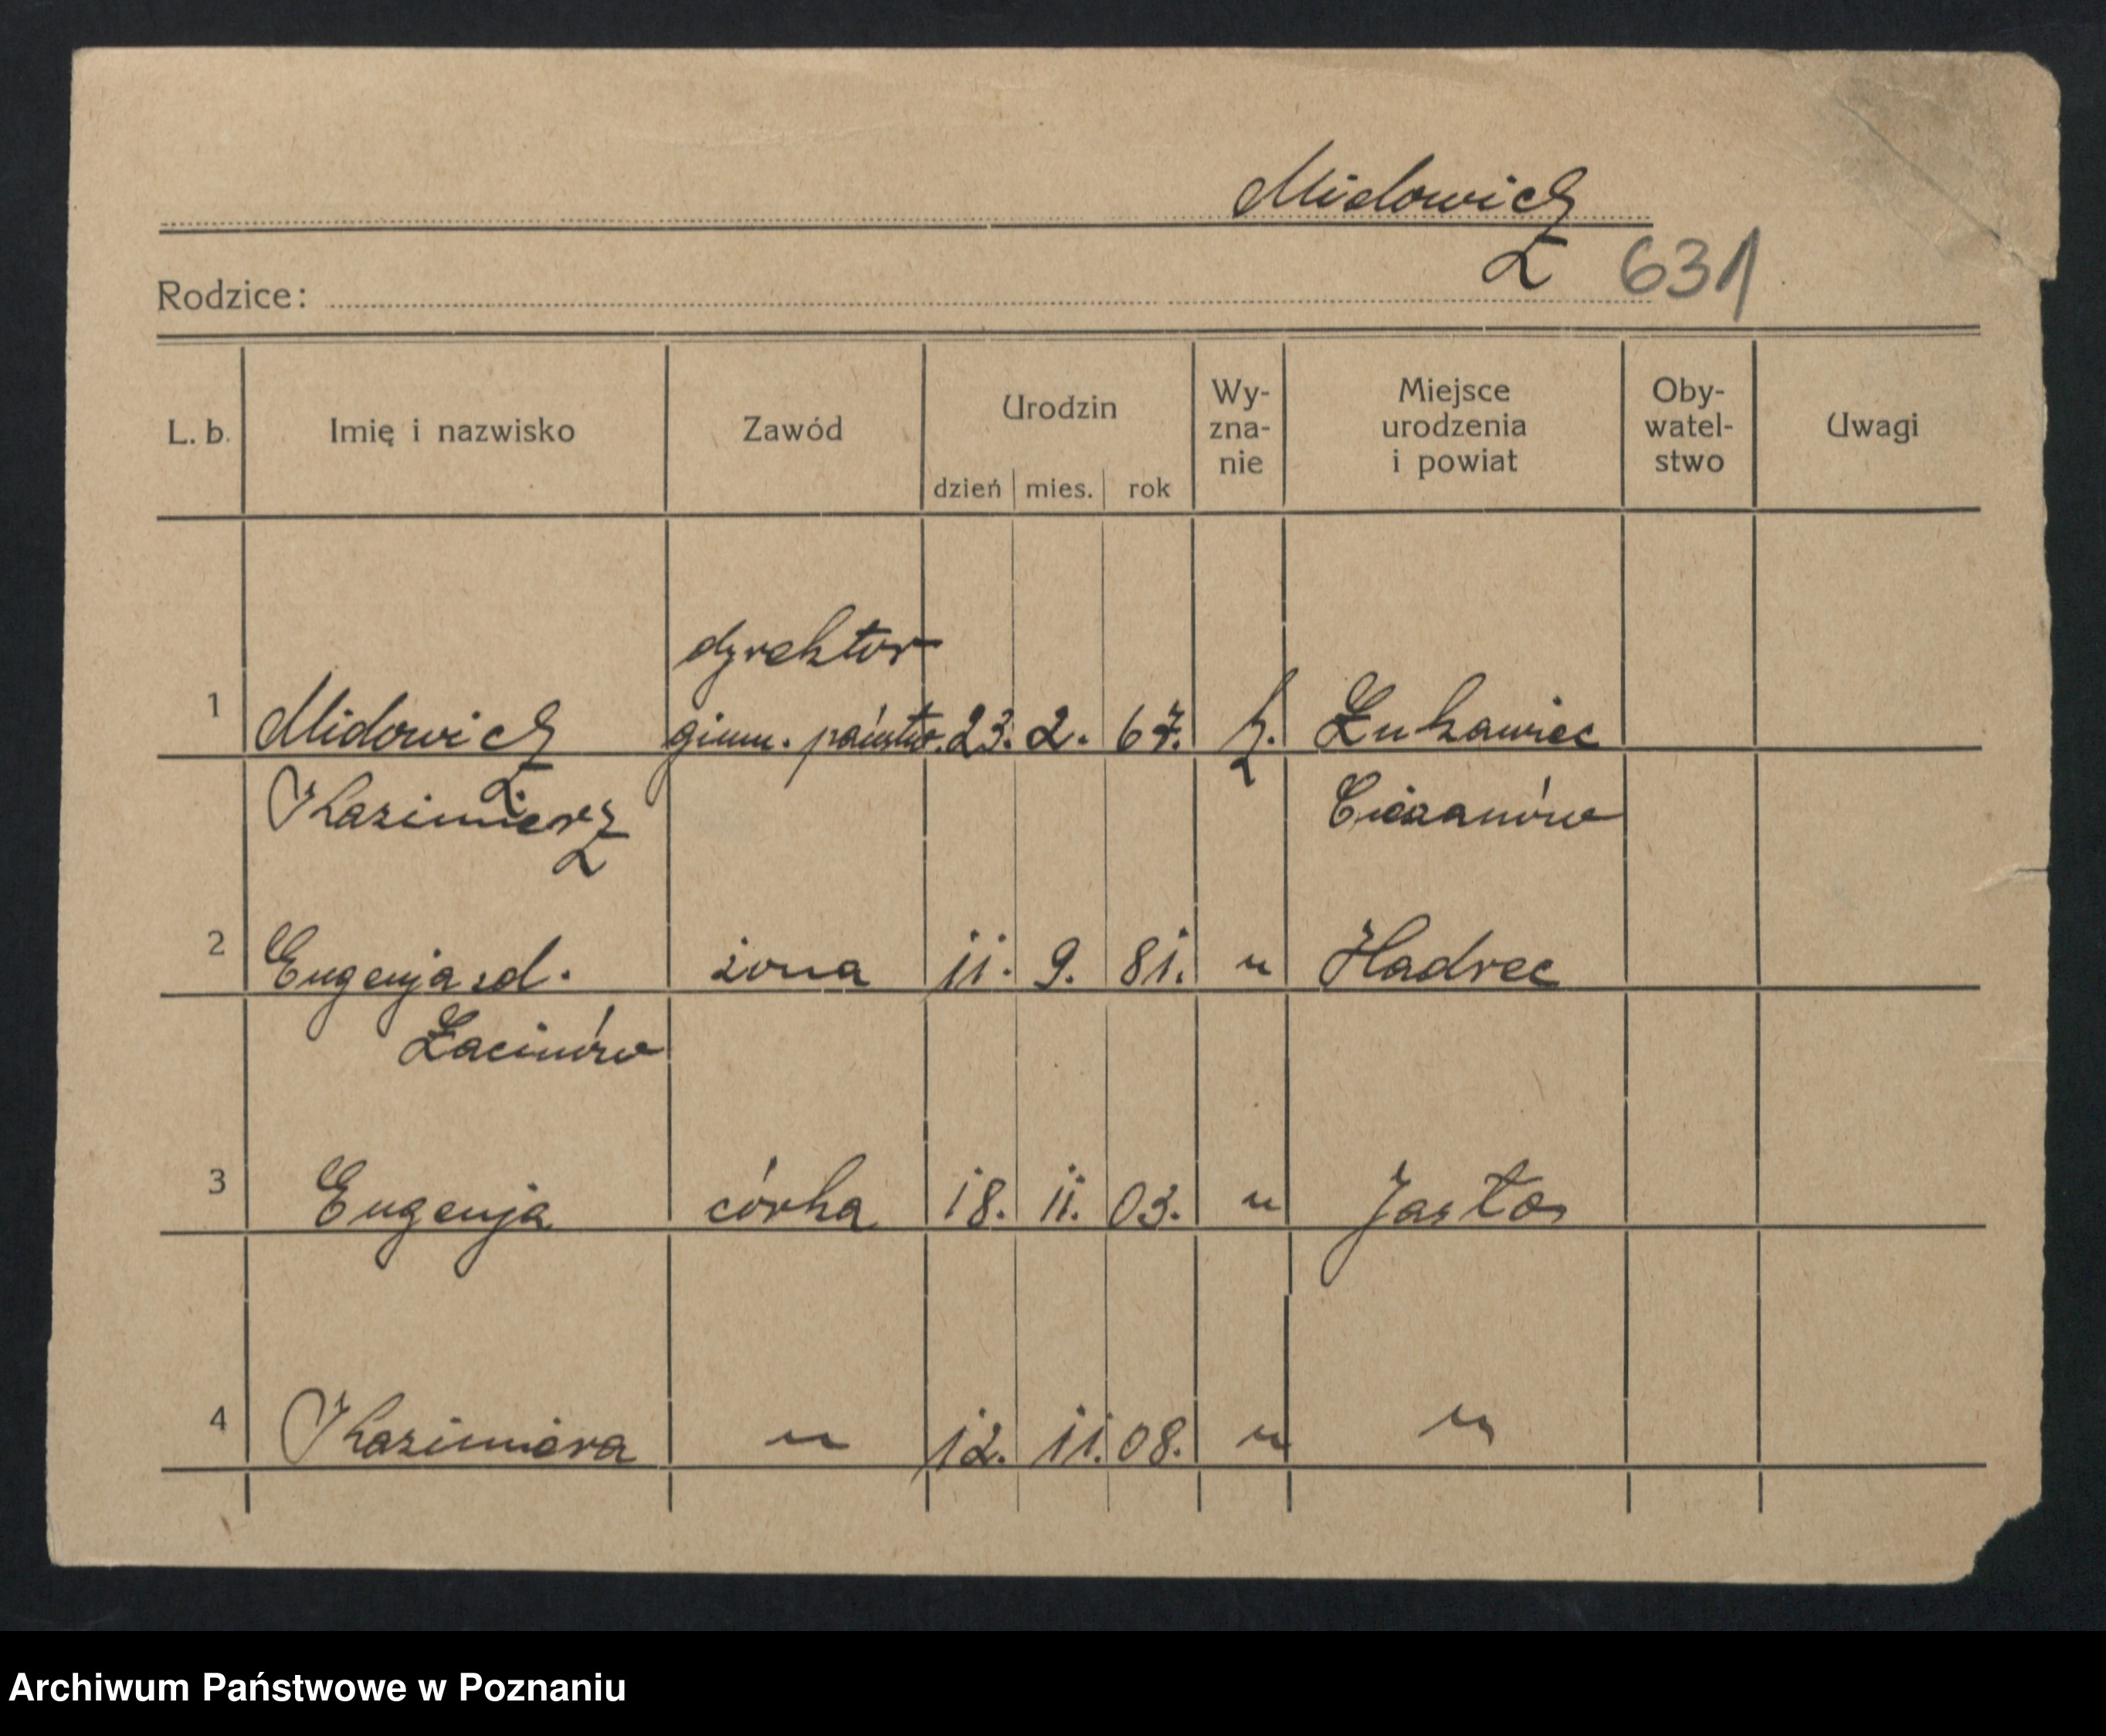 Midowicz
631
Rodzice:
L. b. Imię i nazwisko Zawód Urodzin dzień mies. rok Wy-zna-nie Miejsce urodzenia i powiat Oby-watel-stwo Uwagi
dyrektor
1 Midowicz gimn. państw. 23. 2. 67. Łukawiec
Kazimierz Cieszanów
2 Eugenja zd. żona 11. 9. 81. " Hadrec
Łacinów
3 Eugenja córka 18. 11. 03. " Jasło
4 Kazimiera " 12. 11. 08. " "
Archiwum Państwowe w Poznaniu